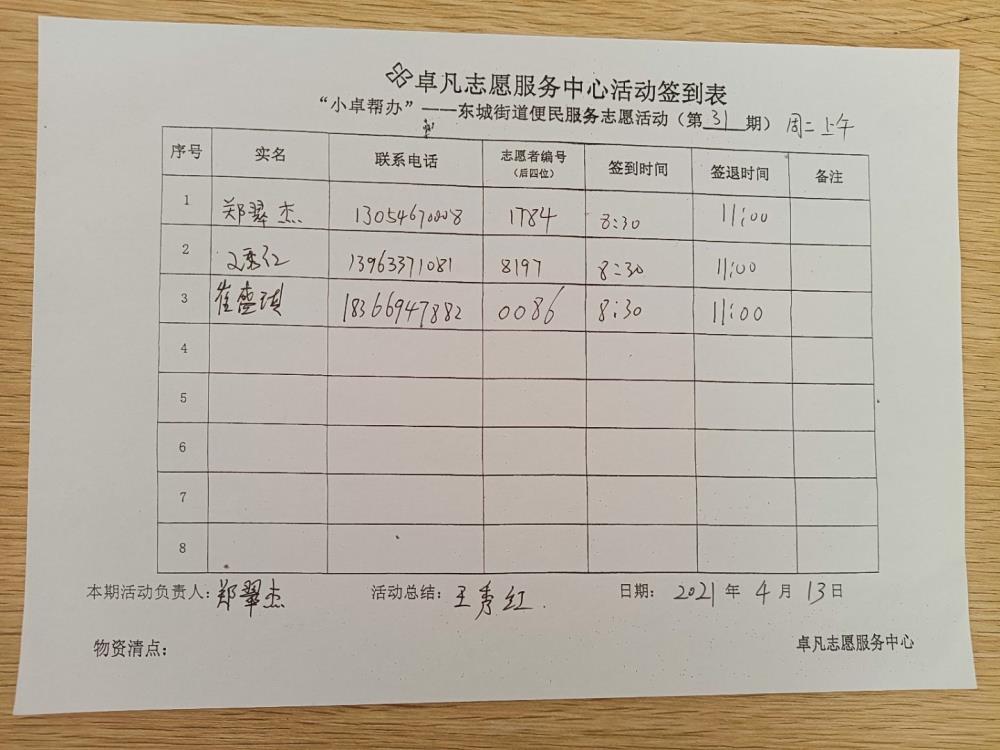 卓凡志愿服务中心活动签到表
“小卓帮办”——东城街道便民服务志愿活动（第31期） 周二上午
序号 实名 联系电话 志愿者编号（后四位） 签到时间 签退时间 备注
1 郑翠杰 13054670008 1784 8:30 11:00
2 王秀红 13963371081 8197 8:30 11:00
3 崔盛琪 18366947882 0086 8:30 11:00
4
5
6
7
8
本期活动负责人：郑翠杰 活动总结：王秀红 日期：2021年4月13日
物资清点： 卓凡志愿服务中心